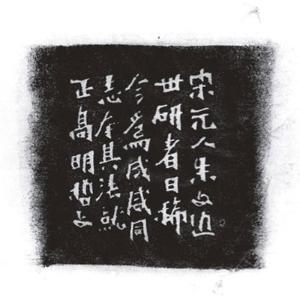 宋元人朱文近
世研者日稀
今爲成咸同
志奉其法就
正高明哲文